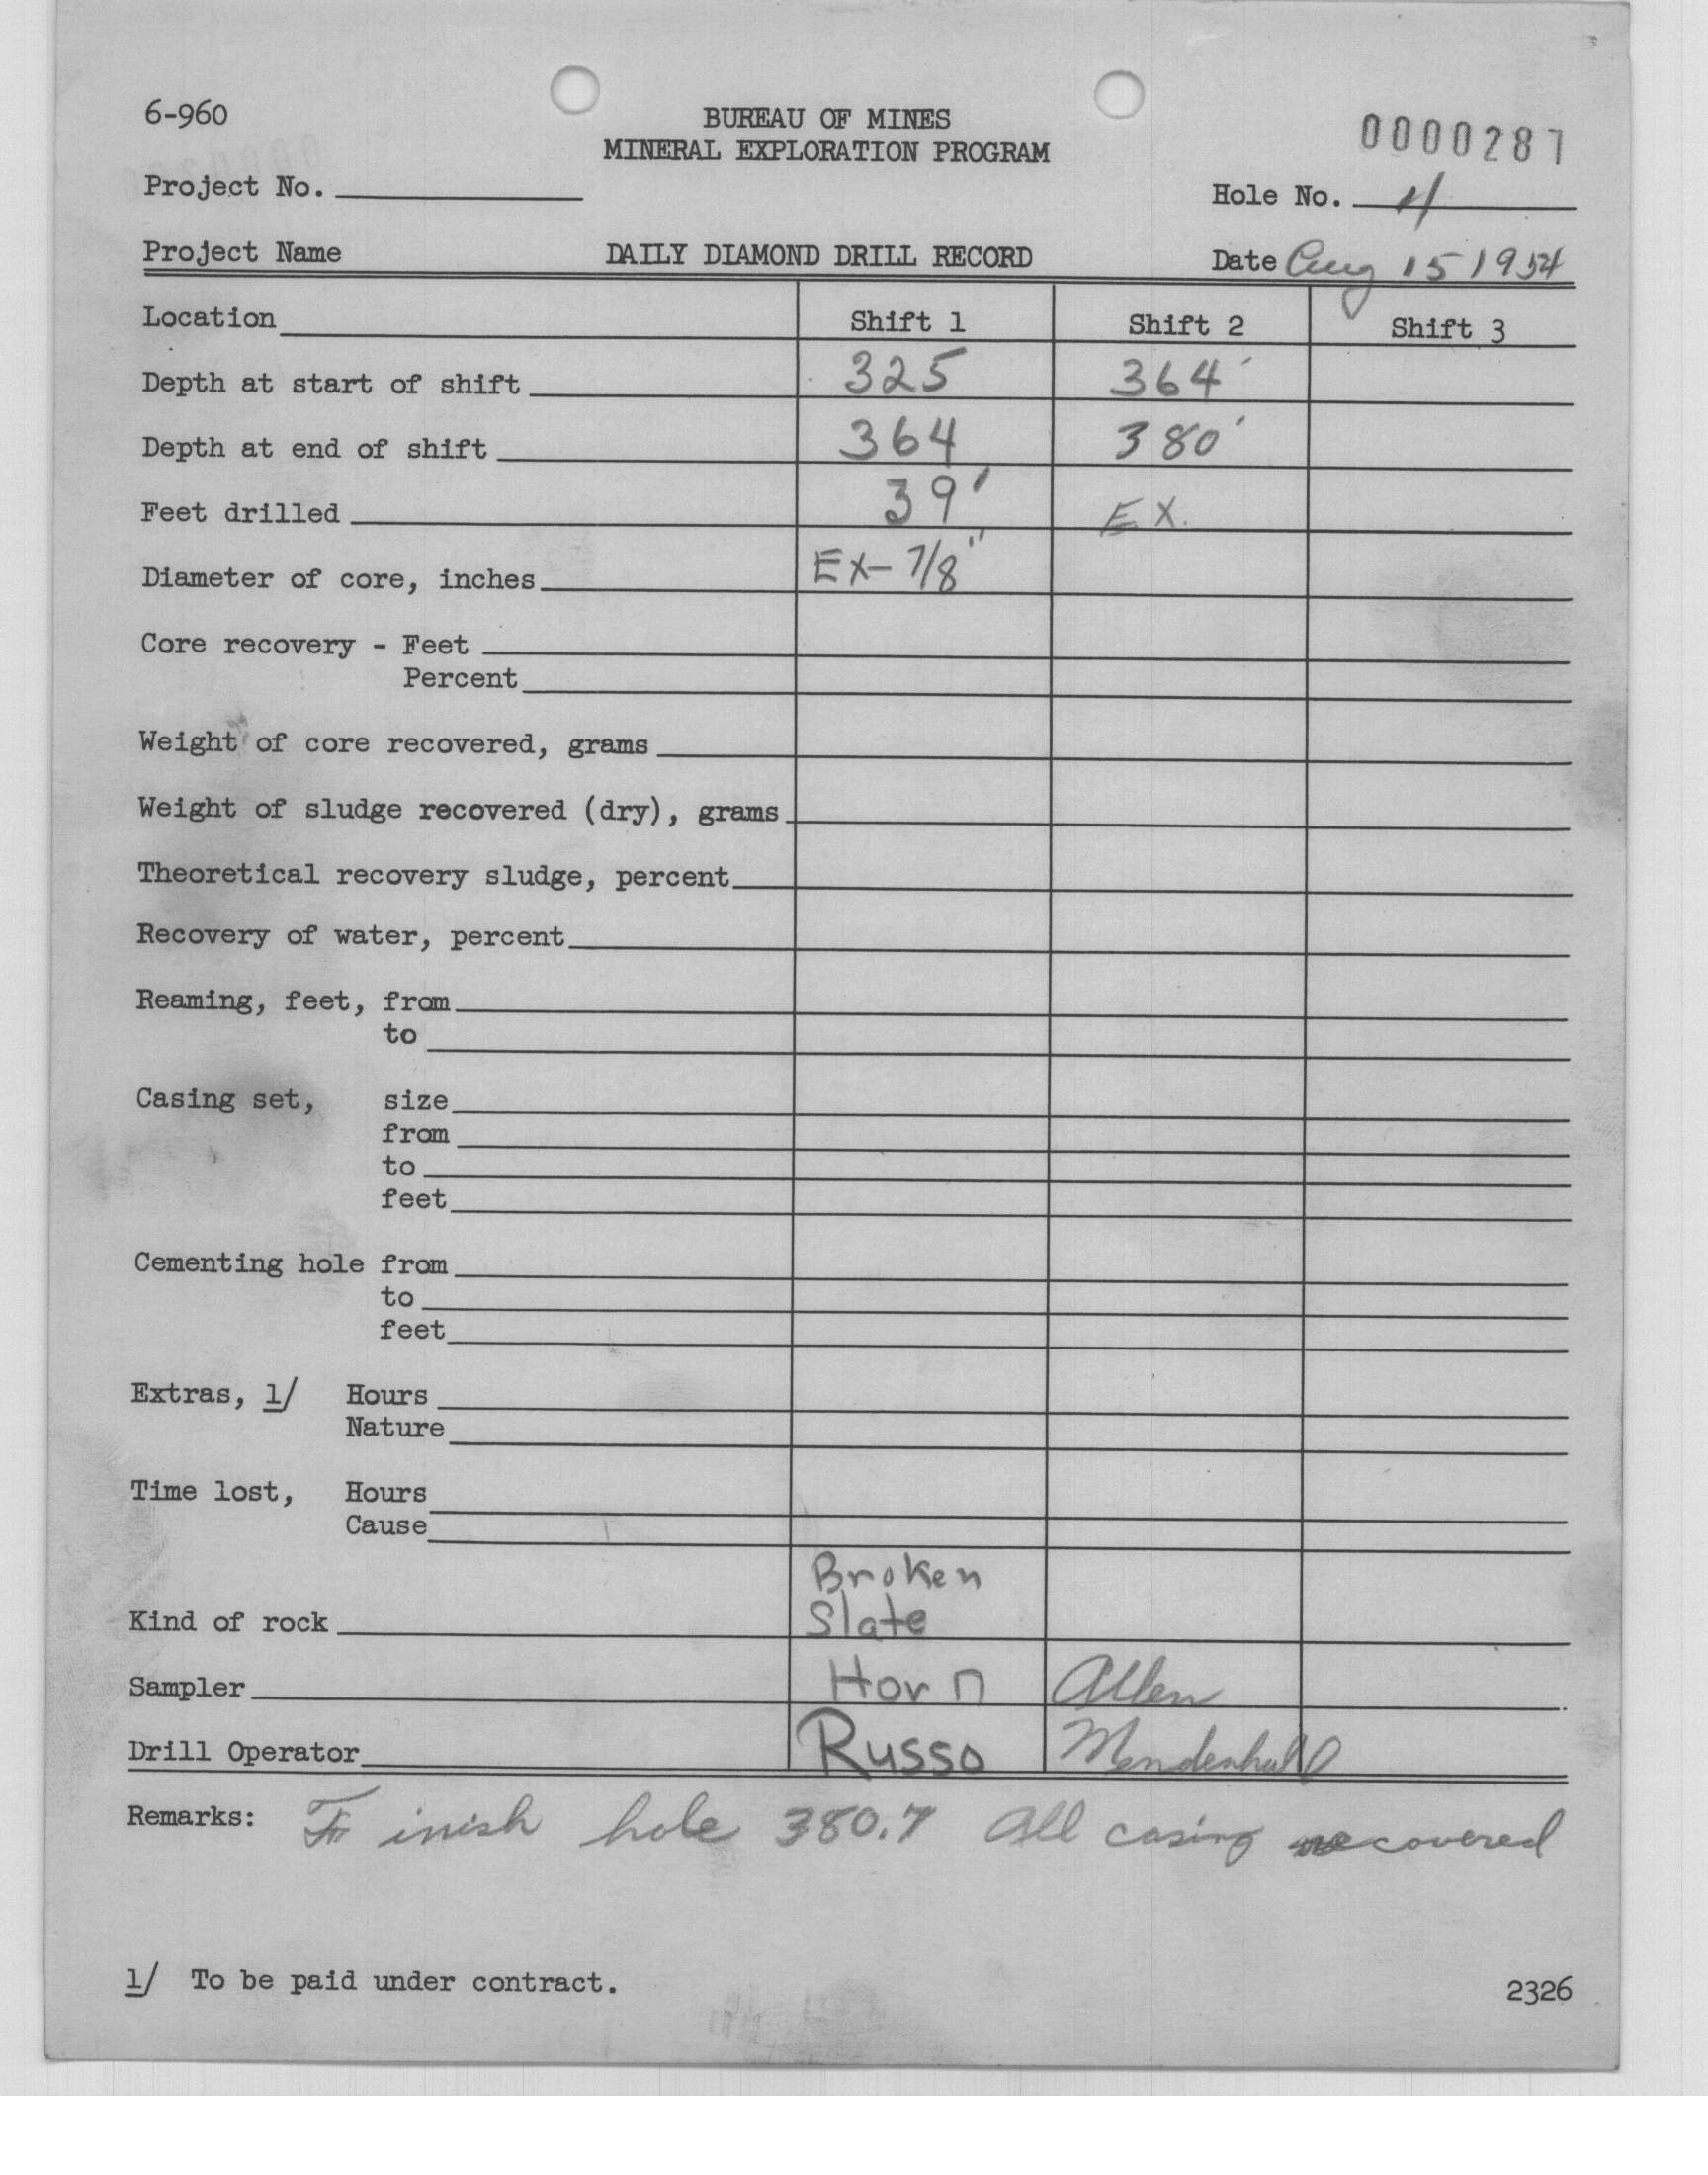 6-960
BUREAU OF MINES
MINERAL EXPLORATION PROGRAM
0000287
Project No.
Hole No. 4
Project Name DAILY DIAMOND DRILL RECORD Date Aug 15 1954
Location Shift 1 Shift 2 Shift 3
Depth at start of shift 325 364'
Depth at end of shift 364 380'
Feet drilled 39' EX.
Diameter of core, inches EX-7/8"
Core recovery - Feet
Percent
Weight of core recovered, grams
Weight of sludge recovered (dry), grams
Theoretical recovery sludge, percent
Recovery of water, percent
Reaming, feet, from
to
Casing set, size
from
to
feet
Cementing hole from
to
feet
Extras, 1/ Hours
Nature
Time lost, Hours
Cause
Broken
Kind of rock Slate
Sampler Horn Allen
Drill Operator Russo Mendenhall
Remarks: Finish hole 380.7 All casing recovered
1/ To be paid under contract.
2326